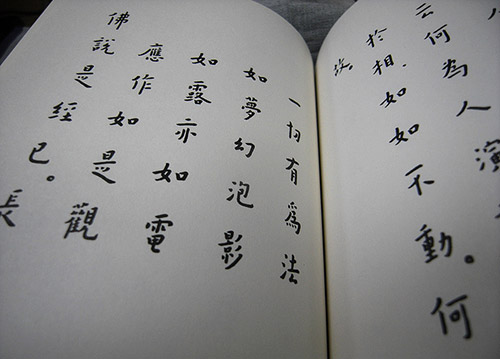 云何為人演
於相.如如不動。何
故
一切有爲法
如夢幻泡影
如露亦如電
應作如是觀
佛說是經已。長